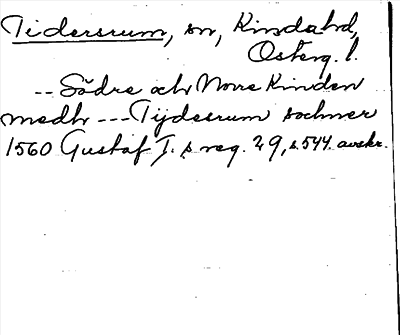 Tidersrum, sn, Kinda hd,
Österg. l.
-- Södre och Norre Kinden
medh --- Tijdesrum sochner
1560 Gustaf I. s reg. 29, s. 544 avskr.